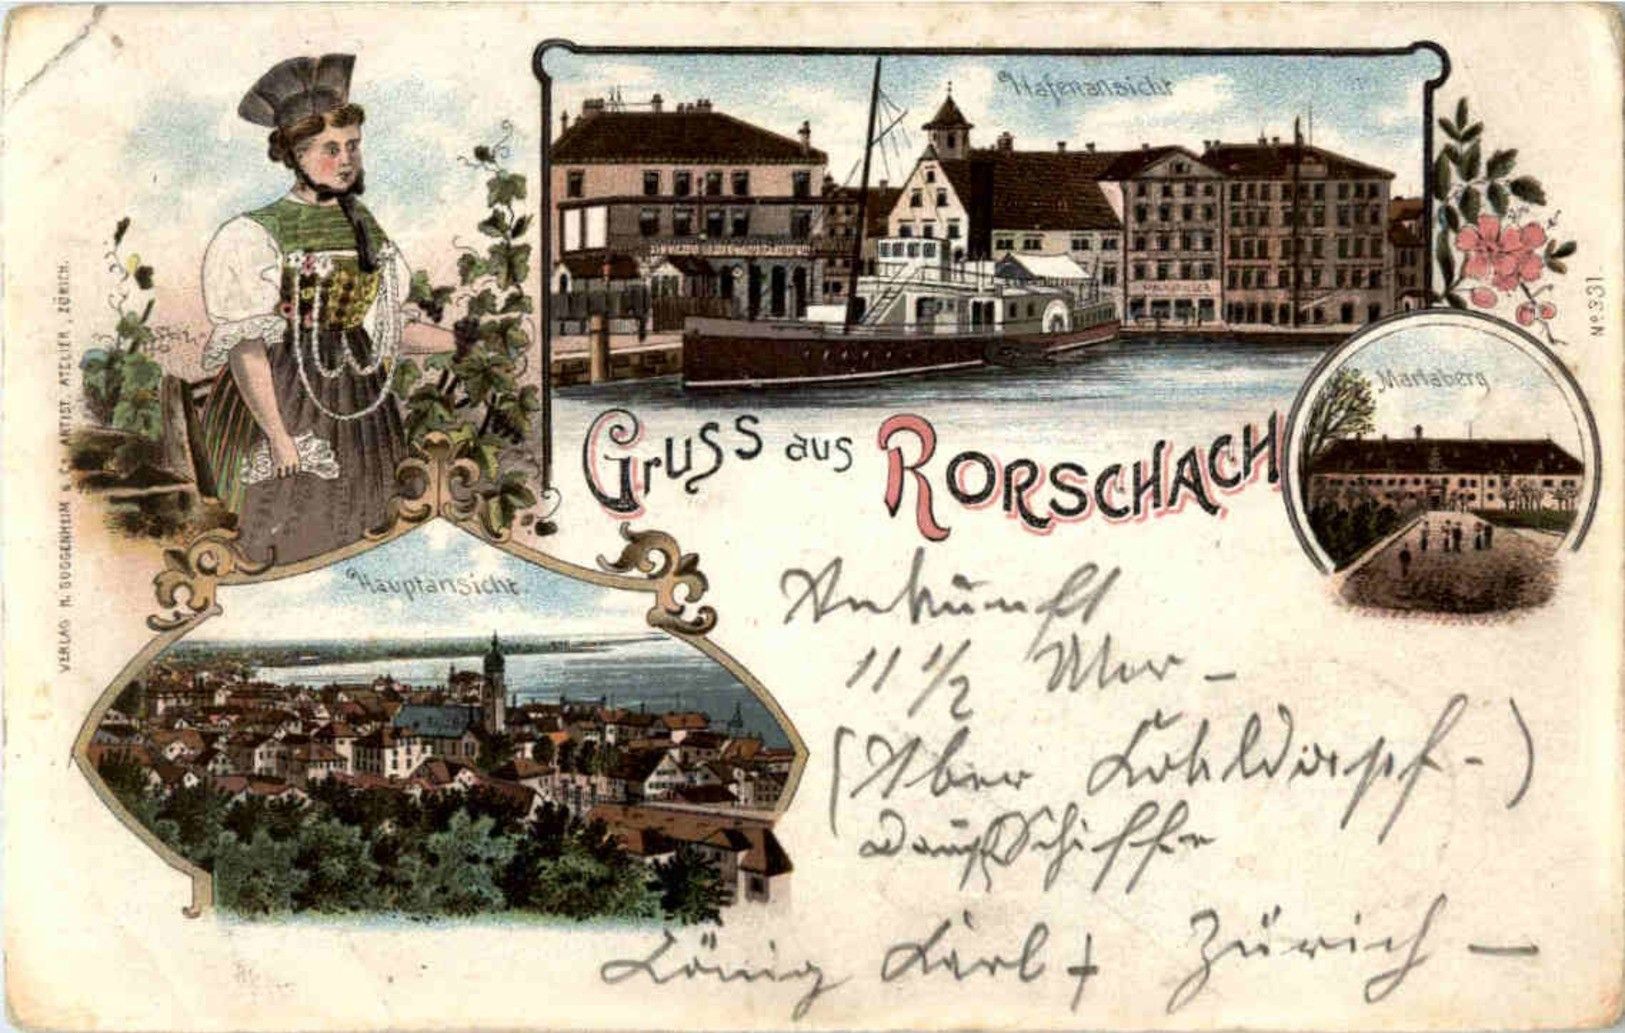 Hafenansicht
Gruss aus RORSCHACH
Mariaberg
Hauptansicht.
VERLAG H. GUGGENHEIM & Co ARTIST. ATELIER, ZÜRICH.
No 331.
Ankunft
11 1/2 Uhr –
(Aber
Dampfschiffe
König Karl + Zürich –